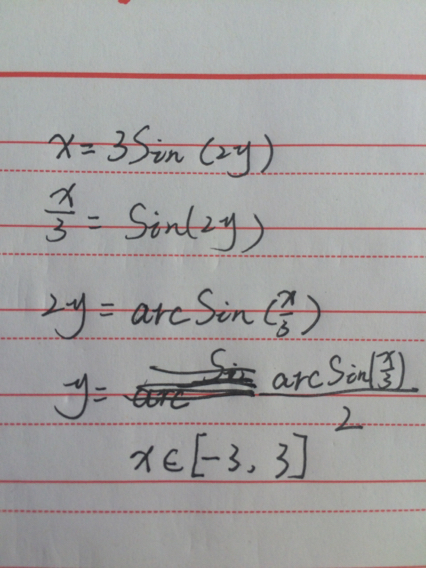 x = 3Sin (2y)
x/3 = Sin(2y)
2y = arcSin (x/3)
y = arcSin(x/3)/2
x ∈ [-3, 3]